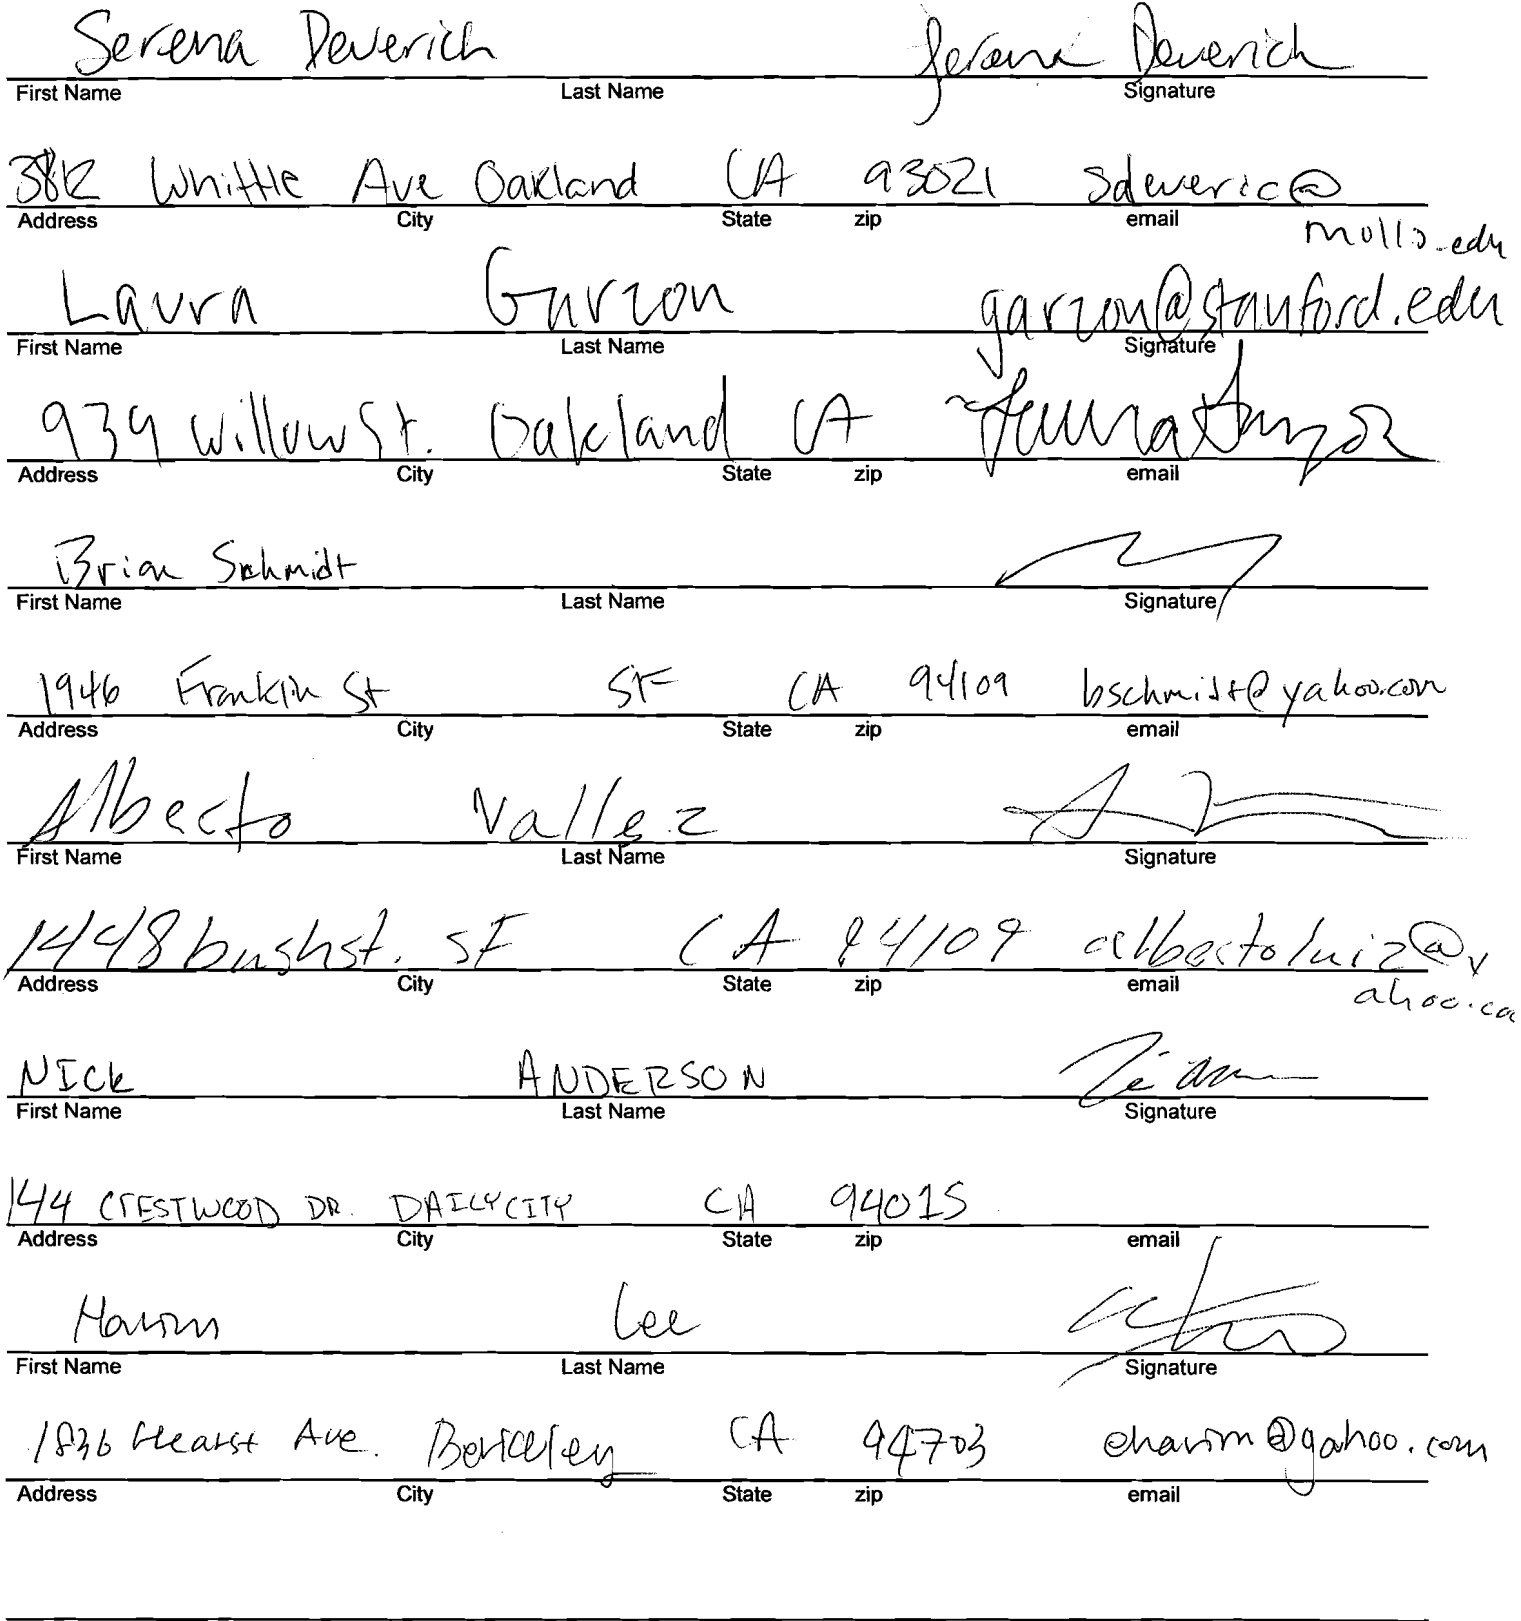 Serena Deverich Serena Deverich
First Name Last Name Signature
Whittle Ave Oakland CA 93021 sdeveric@
Address City State zip email
Laura Garzon garzon@stanford.edu
First Name Last Name Signature
939 Willow St. Oakland CA Laura Garzon
Address City State zip email
Brian Schmidt
First Name Last Name Signature
1946 Franklin St SF CA 94109 bschmidt@yahoo.com
Address City State zip email
Alberto Vallez
First Name Last Name Signature
1448 bush st. SF CA 94109 albertoluiz@y
Address City State zip email
ahoo.co
NICK ANDERSON
First Name Last Name Signature
144 CRESTWOOD DR. DAILY CITY CA 94015
Address City State zip email
Lee
First Name Last Name Signature
1836 Hearst Ave. Berkeley CA 94703
Address City State zip email